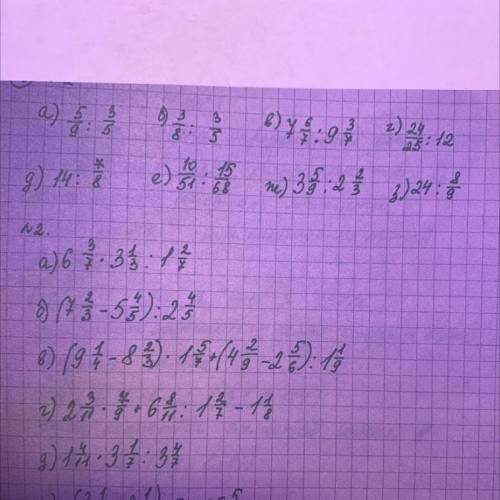 а) 5/9 : 3/5 б) 3/8 : 3/5 в) 7 6/7 : 9 3/7 г) 24/25 : 12
д) 14 : 7/8 е) 10/51 : 15/68 ж) 3 5/9 : 2 2/3 з) 24 : 8/9
№2.
а) 6 3/7 · 3 1/3 : 1 2/7
б) (7 2/3 - 5 4/5) : 2 4/5
в) (9 1/4 - 8 2/3) · 1 5/7 + (4 2/9 - 2 5/6) : 1 1/9
г) 2 3/11 · 7/9 + 6 8/11 : 1 2/7 - 1 1/8
д) 1 4/11 · 3 1/7 : 3 4/7